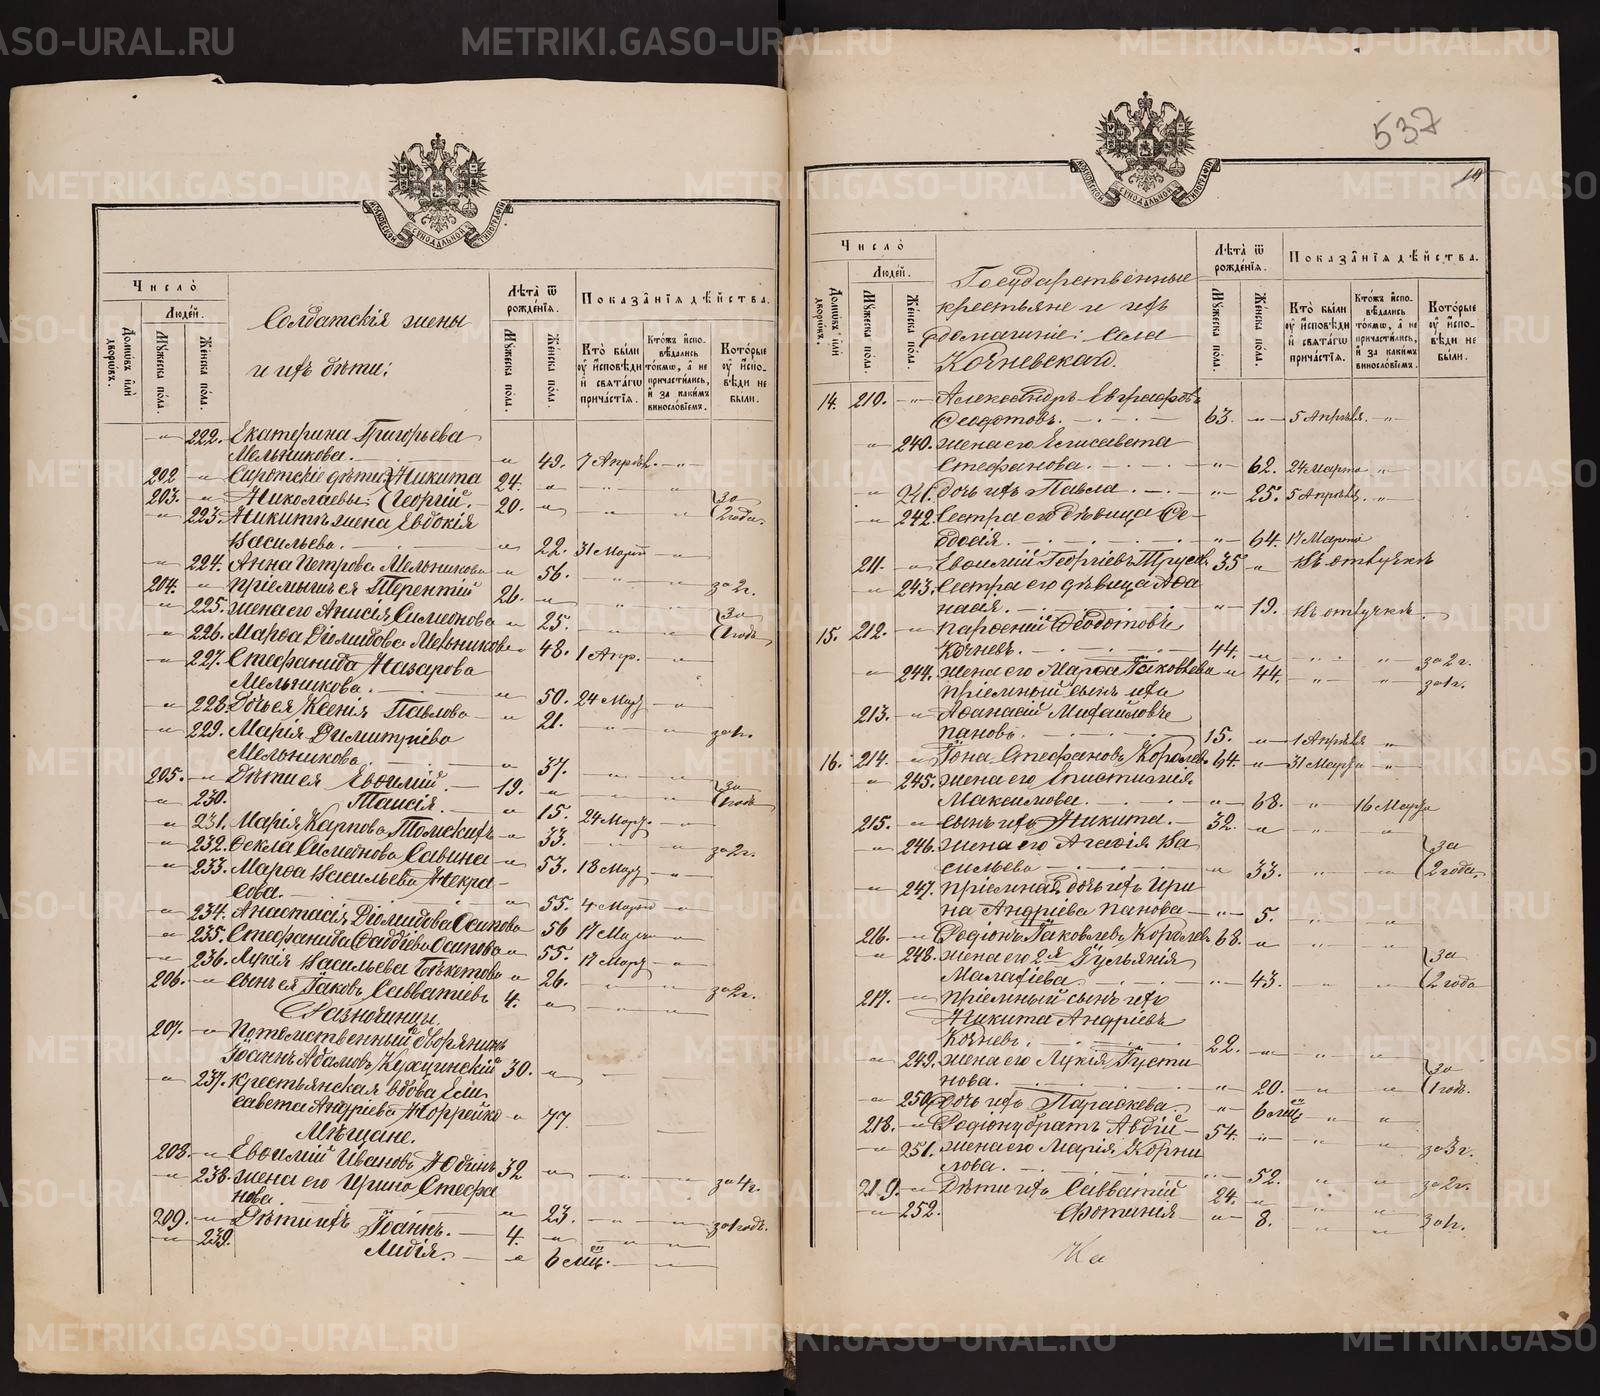 METRIKI.GASO-URAL.RU
МОСКОВСКОЙ СѴНОДАЛЬНОЙ ТИПОГРАФІИ
Число̀
Людей.
Домѡвъ илѝ дворѡвъ.
Мꙋжеска пола.
Женска пола.
Солдатскія жены
и ихъ дѣти:
Лѣта̀ ѿ рожденїѧ.
Мꙋжеска пола.
Женска пола.
Показанїѧ дѣйства.
Кто̀ были ᲂу҆ и҆сповѣди и҆ свѧтагѡ причастїѧ.
Ктожъ и҆сповѣдались токмѡ, а҆ не причастились, и҆ за какимъ винословїемъ.
Которые ᲂу҆ и҆сповѣди не были.
222. Екатерина Григорьева
Мельникова. 49. 7 Апрѣл.
202 Сиротскіе дѣти Никита 24.
203. Николаевы Георгій. 20. за
223. Никиты жена Евдокія 2 года.
Васильева. 22. 31 Март
224. Анна Петрова Мельникова 56.
204. Пріемышъ ея Терентій 26. за 2 г.
225. жена его Анисія Симеонова 25. за
226. Марѳа Діомидова Мельникова 48. 1 Апр. 1 годъ
227. Стефанида Назарова
Мельникова. 50. 24 Мар
228. Дочь ея Ксенія Павлова 21.
229. Марія Димитріева за 1 г.
Мельникова. 37.
205. Дѣти ея Евѳимій. 19. за
230. Таисія. 15. 24 Мар. 1 годъ
231. Марія Карпова Томскихъ 33.
232. Ѳекла Симеонова Савина 53. 18 Мар за 2 г.
233. Марѳа Васильева Некра-
сова. 55. 4 Март
234. Анастасія Діомидова Осипова 56 17 Мар
235. Стефанида Ѳаддѣева Осипова 55. 17 Мар
236. Лукія Васильева Бѣкетова 26.
206. сынъ ея Іаковъ Савватіевъ 4. за 2 г.
Разночинцы.
207. Потомственный дворянинъ
Іоаннъ Адамовъ 30.
237. Крестьянская вдова Ели
савета Андріева 77.
Мѣщане.
208. Евѳимій Ивановъ Юдинъ 32
238. жена его Ирина Стефа за 4 г.
нова. 23.
209. Дѣти ихъ Іоаннъ. 4. за 1 годъ.
239. Лидія. 6 мц.
537
14
МОСКОВСКОЙ СѴНОДАЛЬНОЙ ТИПОГРАФІИ
Число̀
Людей.
Домѡвъ илѝ дворѡвъ.
Мꙋжеска пола.
Женска пола.
Государственные
крестьяне и ихъ
домашніе: села
Кочневскаго.
Лѣта̀ ѿ рожденїѧ.
Мꙋжеска пола.
Женска пола.
Показанїѧ дѣйства.
Кто̀ были ᲂу҆ и҆сповѣди и҆ свѧтагѡ причастїѧ.
Ктожъ и҆сповѣдались токмѡ, а҆ не причастились, и҆ за какимъ винословїемъ.
Которые ᲂу҆ и҆сповѣди не были.
14. 210. Александръ Евграфовъ
Ѳедотовъ. 63. 5 Апрѣля.
240. жена его Елисавета
Стефанова. 62. 24 марта
241. дочь ихъ Павла. 25. 5 Апрѣля.
242. Сестра его дѣвица Ѳе-
одосія. 64. 17 Марта
211. Евѳимій Георгіевъ Трусов 35 въ отлучкѣ
243. Сестра его дѣвица Аѳа
насія. 19. въ отлучкѣ
15. 212. Парѳеній Ѳеодотовъ
Кочневъ. 44. за 2 г.
244. жена его Марѳа Іаковлева 44. за 1 г.
Пріемный сынъ ихъ
213. Аѳанасій Михайловъ
Пановъ. 15. 1 Апрѣля
16. 214. Іона Стефановъ Королевъ 64. 31 Марта
245. жена его Епистимія
Максимова. 68. 16 Марта
215. сынъ ихъ Никита. 32.
246. жена его Агафія Ва за
сильева 33. 2 года.
247. Пріемная дочь ихъ Ири
на Андріева Панова 5.
216. Родіонъ Іаковлевъ Королевъ 68.
248. жена его 2я Іульянія за
Малахіева. 43. 2 года
217. Пріемный сынъ ихъ
Никита Андріевъ
Кочневъ. 22.
249. жена его Лукія Іусти за
нова. 20. 1 годъ.
250. дочь ихъ Параскева. 6 мц
218. Родіону братъ Авдій 54.
251. жена его Марія Корни за 3 г.
лова. 52.
219. Дѣти ихъ Савватій 24. за 2 г.
252. Фотинія 8. за 1 г.
На